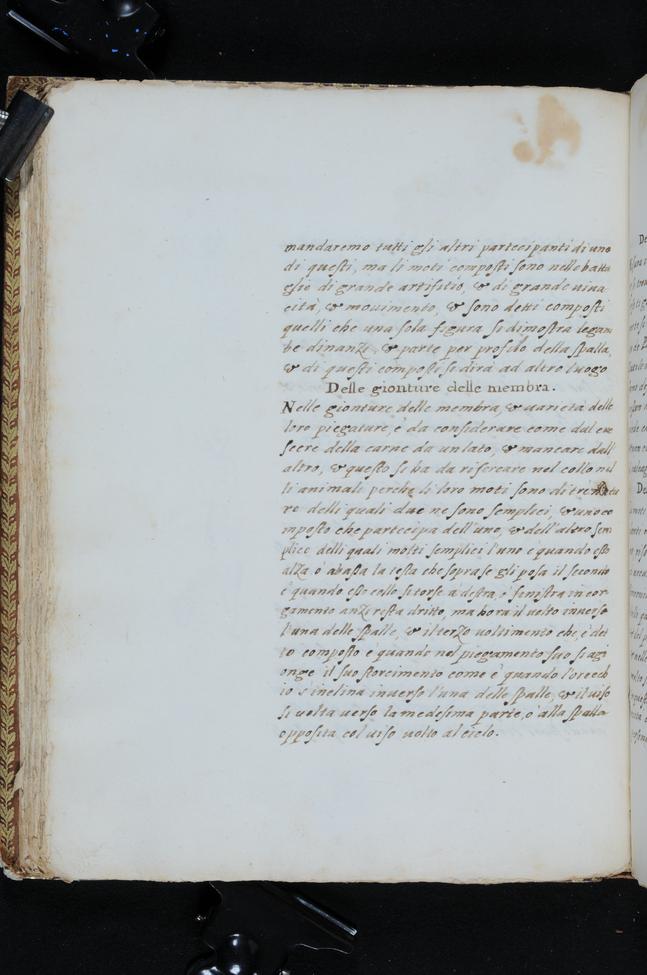 mandaremo tutti gli altri partecipanti di uno
di questi, ma li moti composti sono nelle batta
glie di grande artifitio, & di grande viva
cità, & movimento, & sono detti composti
quelli che una sola figura si dimostra le gam
be dinanzi, & parte per profilo della spalla,
& di questi composti si dirà ad altro luogo
Delle gionture delle membra.
Nelle gionture delle membra, & varietà delle
loro piegature, è da considerare come dal cre
scere della carne da un lato, & mancare dall'
altro, & questo si ha da ricercare nel collo nel
li animali perche li loro moti sono di tre natu
re delli quali due ne sono semplici, & uno co
mposto che partecipa dell'uno, & dell'altro sem
plice delli quali moti semplici l'uno e quando esso
alza o abassa la testa che sopra se gli posa il secondo
è quando esso collo si torse a destra, o sinistra in cor
gamento anzi resta dritto, ma hora il volto inverso
l'una delle spalle, & il terzo voltimento che, è det
to composto e quando nel piegamento suo si agi
onge il suo storcimento come è quando l'orecch
io s'inclina inverso l'una delle spalle, & il viso
si volta verso la medesima parte, o alla spalla
opposita col viso volto al cielo.